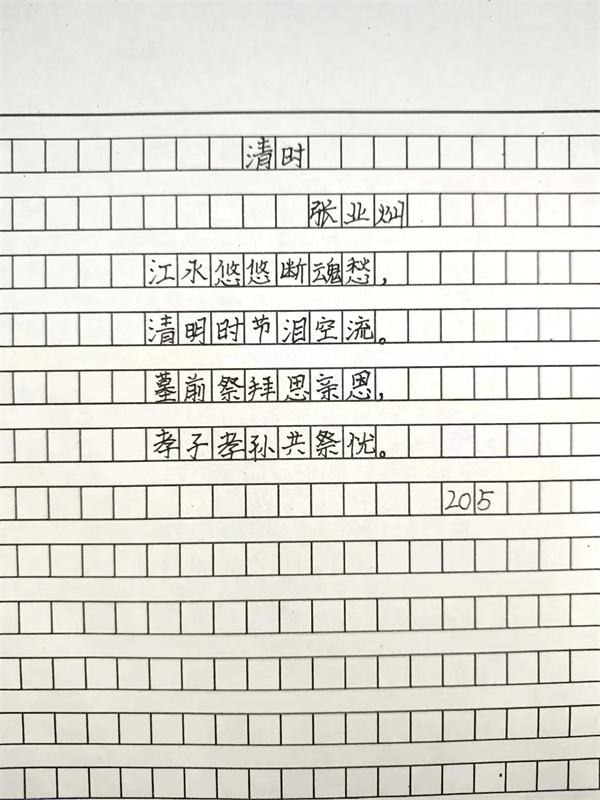 清时
张业炯
江水悠悠断魂愁，
清明时节泪空流。
墓前祭拜思亲恩，
孝子孝孙共祭忧。
205